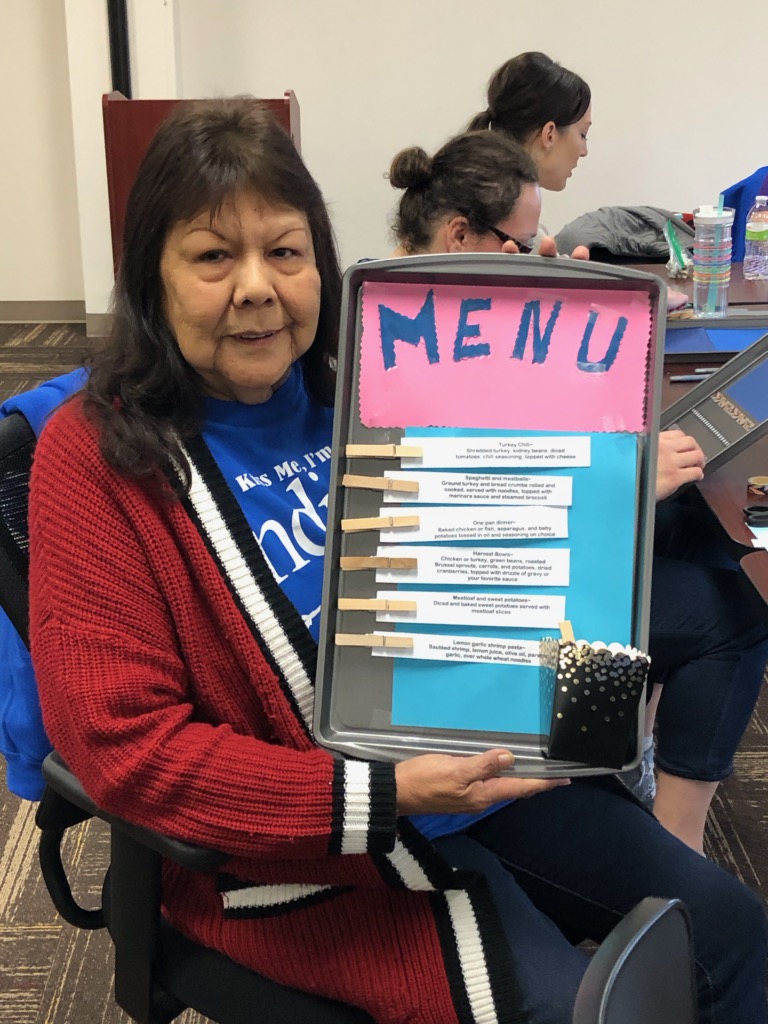 MENU
Turkey Chili~
Shredded turkey, kidney beans, diced
tomatoes, chili seasoning, topped with cheese
Spaghetti and meatballs~
Ground turkey and bread crumbs rolled and
cooked, served with noodles, topped with
marinara sauce and steamed broccoli
One pan dinner~
Baked chicken or fish, asparagus, and baby
potatoes tossed in oil and seasoning on choice
Harvest Bowls~
Chicken or turkey, green beans, roasted
Brussel sprouts, carrots, and potatoes, dried
cranberries, topped with drizzle of gravy or
your favorite sauce
Meatloaf and sweet potatoes~
Diced and baked sweet potatoes served with
meatloaf slices
Lemon garlic shrimp pasta~
Sauteed shrimp, lemon juice, olive oil,
garlic, over whole wheat noodles
Kiss Me, I'm
ndi